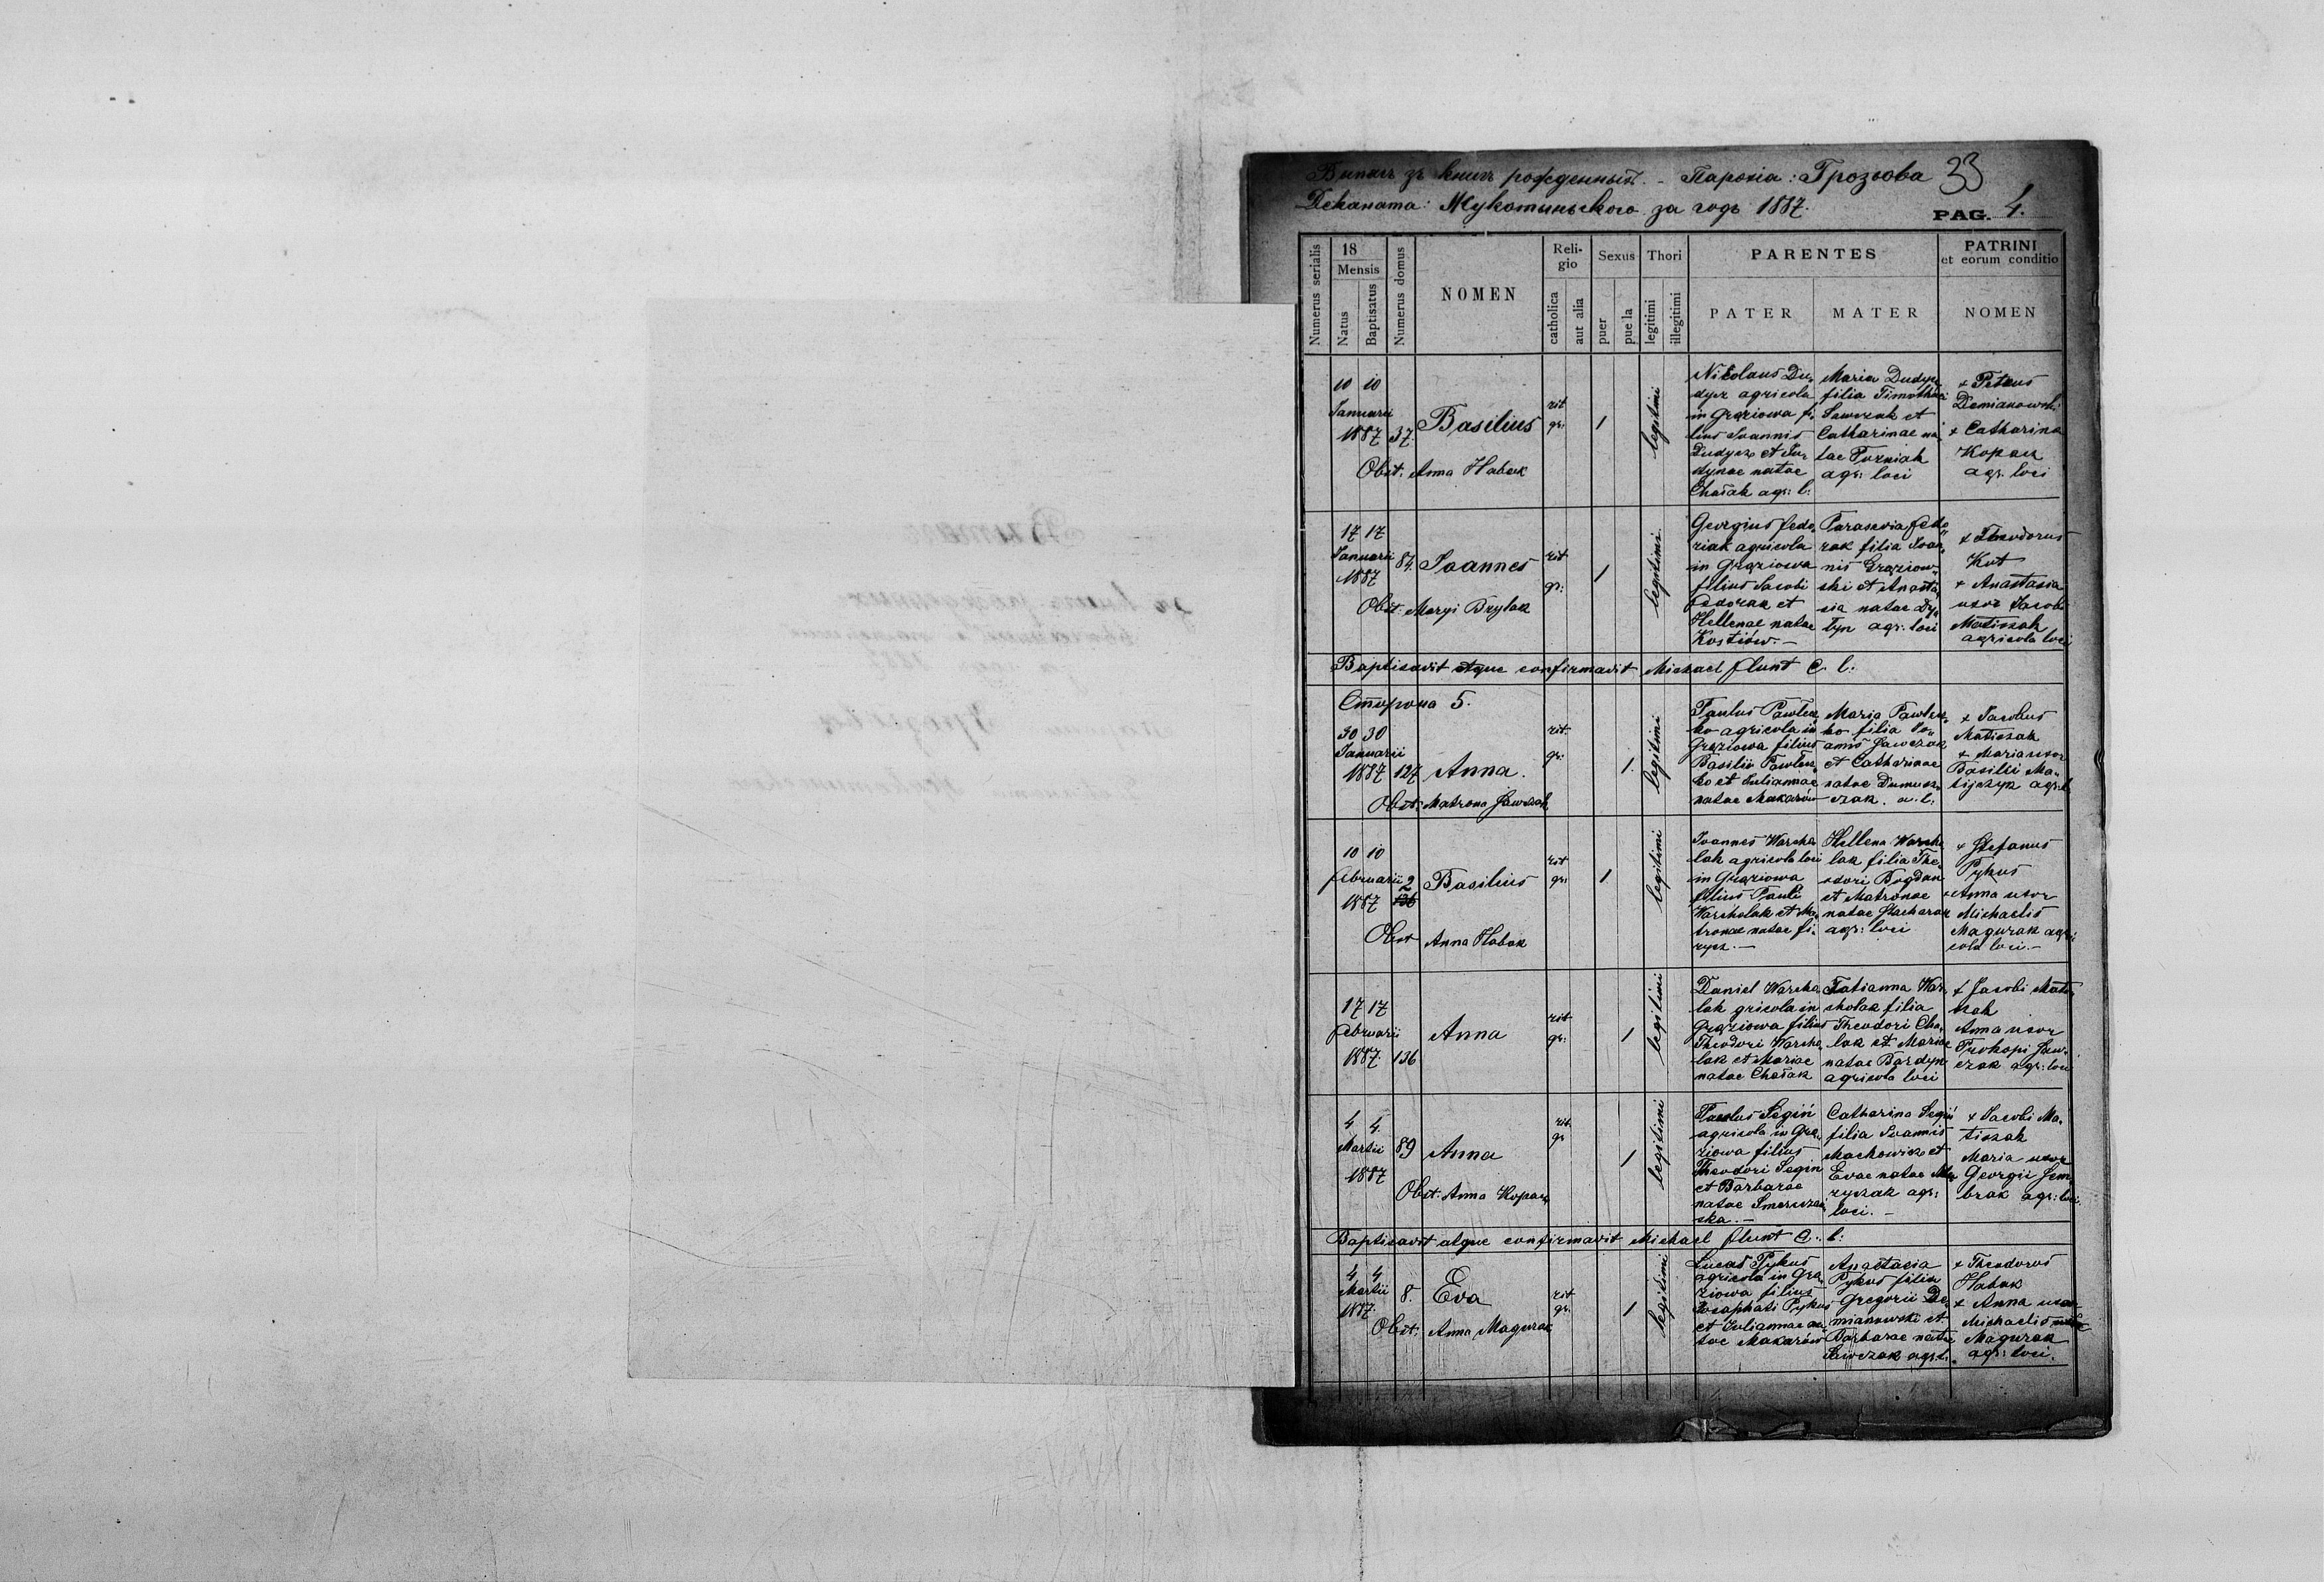 Випись зъ книгъ рожденныхъ. - Парохіа: Грозіова 33
Деканата: Жукотыньского за годъ 1887.
PAG. 4.
Numerus serialis
18
Mensis
Natus
Baptisatus
Numerus domus
NOMEN
Reli-
gio
catholica
aut alia
Sexus
puer
puella
Thori
legitimi
illegitimi
PARENTES
PATER
MATER
PATRINI
et eorum conditio
NOMEN
10 10
Januarii
1887 37.
Basilius
Obst. Anna Habak
rit
gr:
1
legitimi
Nikolaus Du-
dycz agricola
in Groziowa fi-
lius Ioannis
Dudycz et Iu-
stynae natae
Chašak agr: l:
Maria Dudycz
filia Timothei
Sawczak et
Catharinae na-
tae Purniak
agr: loci
+ Petrus
Demianowski
+ Catharina
Kopacz
agr. loci
17 17
Januarii
1887
84.
Ioannes
Obst. Maryi Brylak
rit
gr:
1
legitimi
Georgius Fedo-
riak agricola
in Groziowa
filius Jacobi
Fedorak et
Hellenae natae
Kostiów. -
Paraskevia Fedo-
rak filia Ioan-
nis Groziow-
ski et Anasta-
sia natae Dy-
tyn agr: loci
+ Theodorus
Kot
+ Anastasia
uxor Jacobi
Matiszak
agricola loci
Baptisavit atque confirmavit Michael Flunt C. l:
Сторона 5.
30 30
Januarii
1887 127
Anna.
Obst: Matrona Sawczak
rit
gr:
1.
legitimi
Paulus Pawlusz-
ko agricola in
Groziowa filius
Basilii Pawlusz-
ko et Iulianae
natae Makarów
Maria Pawlusz-
ko filia Io-
annis Sawczak
et Catharinae
natae Dumusz-
czak. a. l.
+ Jacobus
Matiszak
+ Maria uxor
Basilii Ma-
tijczyk agr: l.
10 10
Februarii
1887
2
136
Basilius
Obst Anna Habak
rit
gr:
1
legitimi
Ioannes Warcho-
lak agricola loci
in Groziowa
filius Pauli
Warcholak et Ma-
tronae natae Fi-
rycz. -
Hellena Warcho-
lak filia The-
odori Bogdan
et Matronae
natae Stacharak
agr: loci
+ Stefanus
Pykus
+ Anna uxor
Michaelis
Magurak agri-
cola loci. -
17 17
Februarii
1887. 136
Anna
rit
gr:
1
legitimi
Daniel Warcho-
lak gricola in
Groziowa filius
Theodori Warcho-
lak et Mariae
natae Chašak
Tatianna War-
cholak filia
Theodori Cha-
lak et Mariae
natae Bardyn
agricola loci
+ Jacobi Mati-
szak
Anna uxor
Prokopi Saw-
czak agr: loci
4 4.
Martii
1887
89
Anna
Obst: Anna Kopacz
rit.
gr
1
legitimi
Paulus Segiń
agricola in Gro-
ziowa filius
Theodori Segin
et Barbarae
natae
Catharina Segiń
filia Ioannis
Machowicz et
Evae natae
agr:
loci. -
+ Jacobi Ma-
tiszak
Maria uxor
Georgii Sem-
brak agr: loci.
Baptisavit atque confirmavit Michael Flunt C. l:
4 4
Martii
1887.
8.
Eva
Obst: Anna Magurak
rit
gr.
1
legitimi
Lucas Pykus
agricola in Gro-
ziowa filius
Iosaphati Pykus
et Iuliannae na-
tae Makarów
Anastasia
Pykus filia
Gregorii De-
mianowski et
Barbarae natae
Sawczak agr: l.
+ Theodoros
Habak
+ Anna uxor
Michaelis
Magurak
agr: loci.